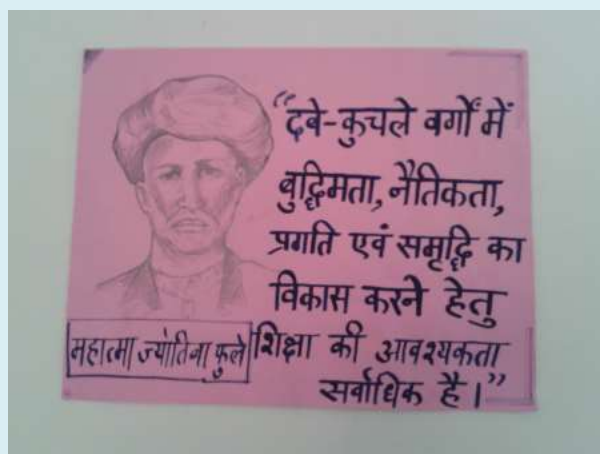 “दबे-कुचले वर्गों में
बुद्धिमता, नैतिकता,
प्रगति एवं समृद्धि का
विकास करने हेतु
शिक्षा की आवश्यकता
सर्वाधिक है।”
महात्मा ज्योतिबा फुले